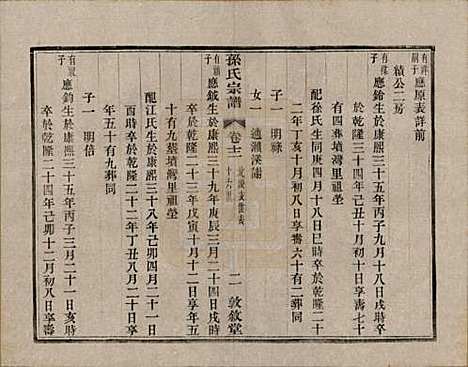 有祥嗣子 應原表詳前
績公二房
有祿子 應鎔生於康熙三十五年丙子九月十八日戌時卒
於乾隆三十四年十月初十日享壽七十
有四葬墳灣里祖塋
配徐氏生同庚四月十八日巳時卒於乾隆二十
二年丁亥十月初八日享壽六十有二葬同
子一 明祿
女一 適瀨溪潘
孫氏宗譜 卷十二 十六世 二 敦敘堂
應鉞生於康熙三十九年庚辰三月二十日戌時
卒於乾隆二十三年戊寅十月十二日享年五
十有九葬墳灣里祖塋
配江氏生於康熙三十八年己卯四月二十一日
酉時卒於乾隆二十二年丁丑八月二十日享
年五十有九葬同
子一 明倍
應鈞生於康熙三十五年丙子三月二十一日亥時
卒於乾隆二十四年己卯十二月初八日享壽